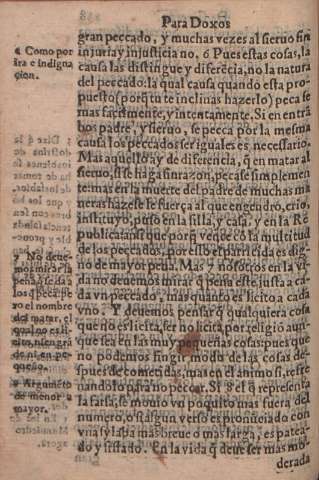 Para Doxos
gran peccado, y muchas vezes al sieruo sin
injuria y injusticia no. 6 Pues estas cosas, la
causa las distingue y diferẽcia, no la natura
del peccado: la qual causa quando esta pro-
puesto (porq̃ tu te inclinas hazerlo) peca se
mas facilmente, y intentamente. Si en entrã
bos padre, y sieruo, se pecca por la mesma
causa los peccados ser iguales es necessario.
Mas aquello ay de diferencia, q̃ en matar al
sieruo, si se haga sin razon, peca se simplemen
te: mas en la muerte del padre de muchas ma
neras haze se le fuerça al que engendro, crio,
instituyo, puso en la silla, y casa, y en la Re
publica tanto que porq̃ vence cõ la multitud
de los peccados, por esso el parricida es dig-
no de mayor pena. Mas 7 nosotros en la vi-
da no deuemos mirar q̃ pena este justa a ca-
da vn peccado, mas quanto es licito a cada
vno. Y deuemos pensar q̃ qualquiera cosa
que no es licita, ser no licita por religiõ aun-
que sea en las muy pequeñas cosas: pues que
no podemos fingir modo de las cosas des-
pues de cometidas, mas en el animo si, reste-
nandolo para no peccar. Si 8 el q̃ representa
la farsa, se mouio vn poquito mas fuera del
numero, o si algun verso es pronũciado con
vna sylaba mas breue o mas larga, es patea-
do y sisado. En la vida q̃ deue ser mas mo-
derada
6 Como por
ira e indigna
cion.
7 No deue-
mos mirar la
pena q̃ se da a
los q̃ peca pe
ro el nombre
del matar, el
qual no es li-
cito, ni en grã
de ni en pe-
queño.
8 Argumẽto
de menor a
mayor.